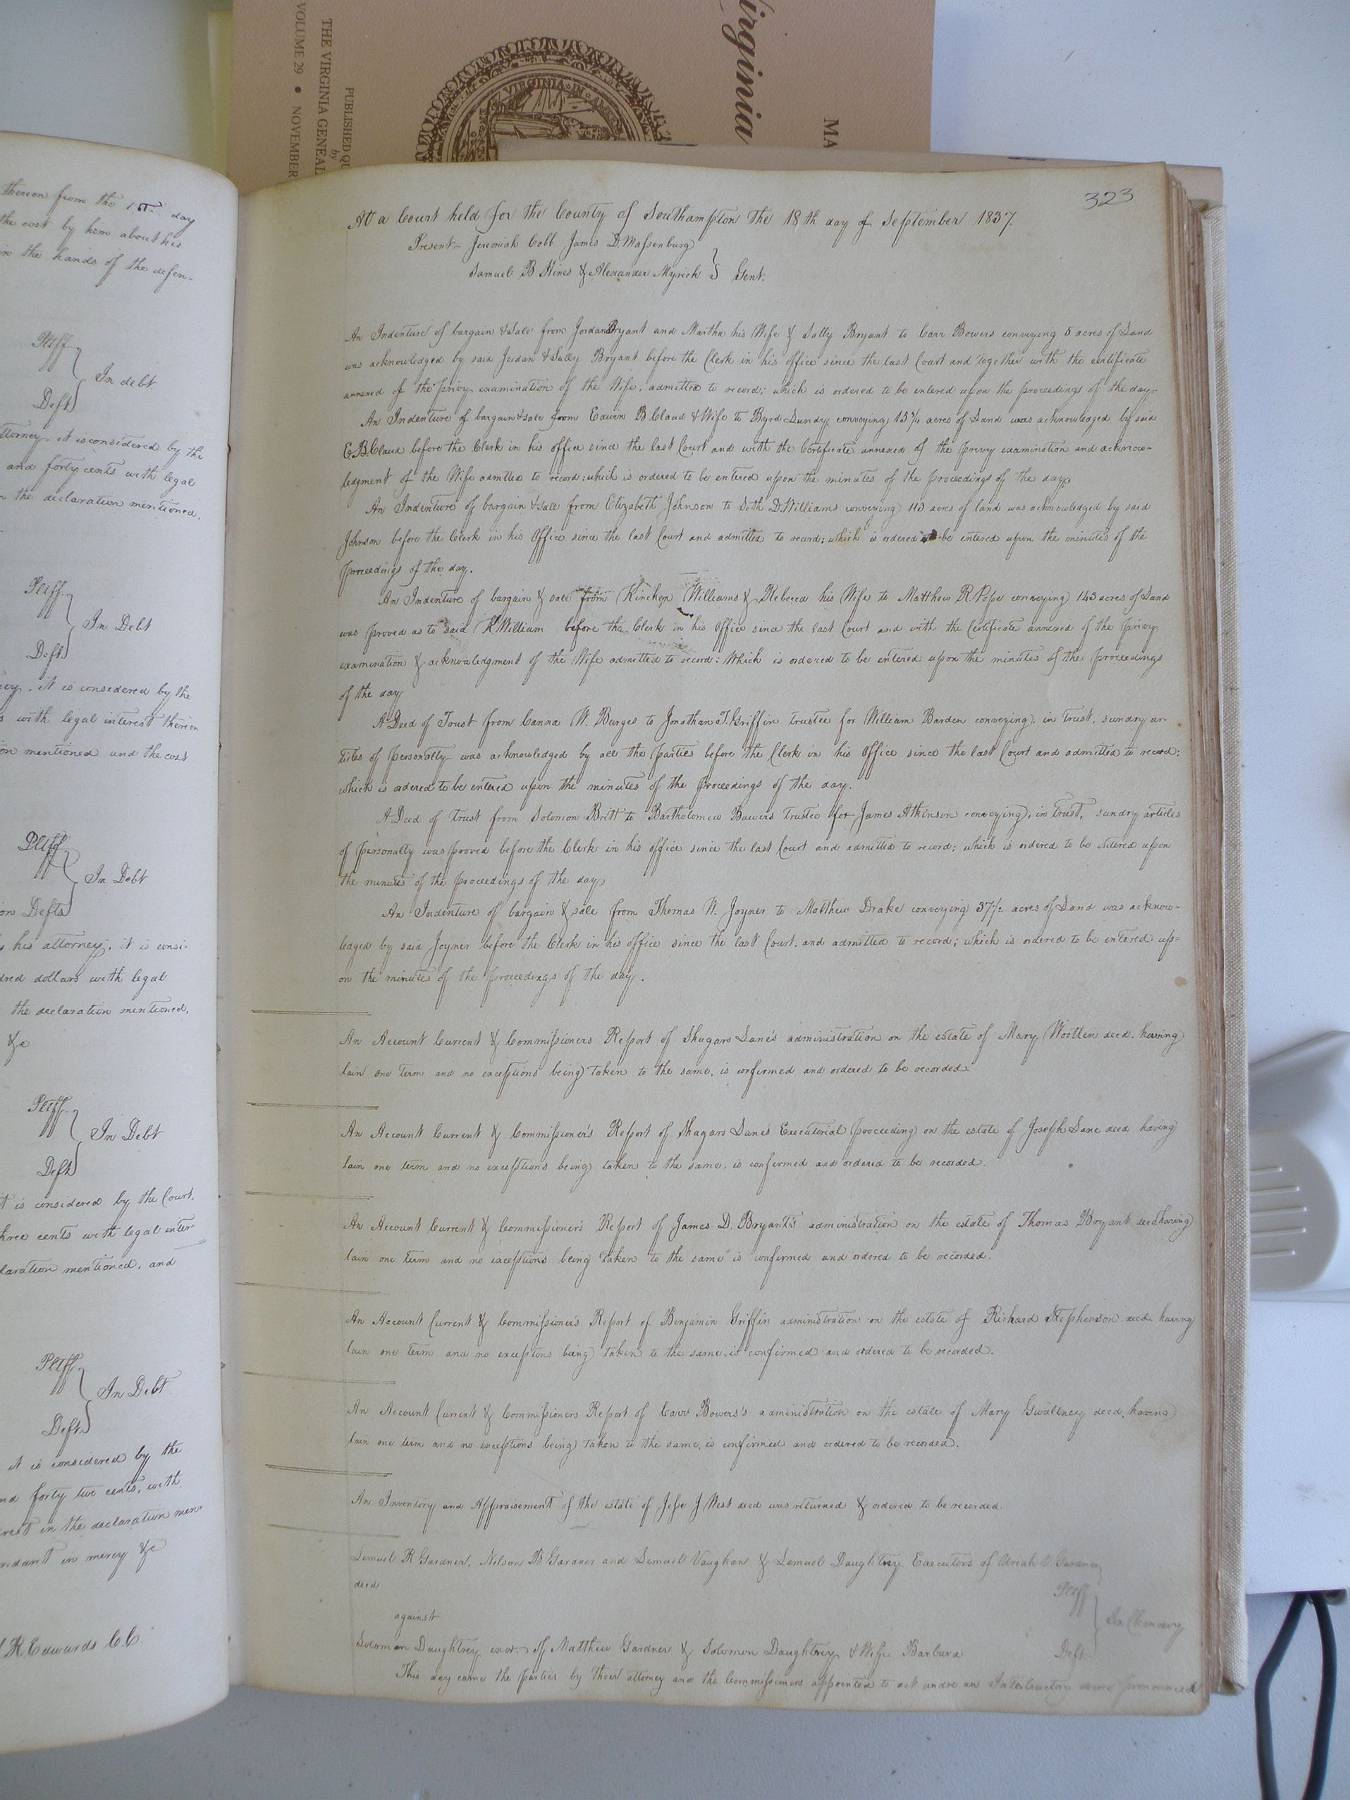 Virginia
MA
PUBLISHED QU
by
THE VIRGINIA GENEAL
VOLUME 29 • NOVEMBER
VIRGINIA
thereon from the 1st day
the cost by him about his
in the hands of the defen-
Pltff
In debt
Deft
attorney. it is considered by the
and forty cents with legal
the declaration mentioned.
Pltff
In Debt
Deft
it is considered by the
with legal interest thereon
mentioned and the cost
Pltff
In Debt
Defts
his attorney, it is consi-
dred dollars with legal
the declaration mentioned,
&c
Pltff
In Debt
Deft
it is considered by the Court,
three cents with legal inter-
claration mentioned, and
Pltff
In Debt
Deft
it is considered by the
and forty two cents, with
rest in the declaration men-
endant in mercy &c
R Edwards C.C.
323
At a Court held for the County of Southampton the 18th day of September 1837.
Present- Jeremiah Cobb James D. Massenburg
Samuel B Hines & Alexander Myrick } Gent.
An Indenture of bargain & Sale from Jordan Bryant and Martha his Wife & Sally Bryant to Carr Bowers conveying 5 acres of Land
was acknowledged by said Jordan & Sally Bryant before the Clerk in his office since the last Court and together with the certificate
annexed of the privy examination of the Wife, admitted to record; which is ordered to be entered upon the proceedings of the day.
An Indenture of bargain & sale from Edwin B. Claud & Wife to Byrd Lundy conveying 15½ acres of Land was acknowledged by said
E.B. Claud before the Clerk in his office since the last Court and with the Certificate annexed of the privy examination and acknow-
ledgment of the Wife admitted to record; which is ordered to be entered upon the minutes of the proceedings of the day
An Indenture of bargain & sale from Elizabeth Johnson to Seth D. Williams conveying 113 acres of land was acknowledged by said
Johnson before the Clerk in his Office since the last Court and admitted to record; which is ordered to be entered upon the minutes of the
proceedings of the day.
An Indenture of bargain & sale from Kinchen Williams & Rebecca his Wife to Matthew R. Pope conveying 143 acres of Land
was proved as to said K. William before the Clerk in his office since the last Court and with the Certificate annexed of the Privy
examination & acknowledgment of the Wife admitted to record; Which is ordered to be entered upon the minutes of the proceedings
of the day
A Deed of Trust from Canna W. Burges to Jonathan T. Griffin trustee for William Barden conveying, in trust, sundry ar-
ticles of personalty was acknowledged by all the parties before the Clerk in his Office since the last Court and admitted to record;
which is ordered to be entered upon the minutes of the proceedings of the day.
A Deed of Trust from Solomon Britt to Bartholomew Bowers trustee for James Atkinson conveying, in trust, sundry articles
of personalty was proved before the Clerk in his office since the last Court and admitted to record; which is ordered to be entered upon
the minutes of the proceedings of the day
An Indenture of bargain & sale from Thomas W. Joyner to Matthew Drake conveying 37½ acres of Land was acknow-
ledged by said Joyner before the Clerk in his office since the last Court, and admitted to record; which is ordered to be entered up=
on the minutes of the proceedings of the day.
An Account Current & Commissioners Report of Shugars Lane's administration on the estate of Mary Wootten decd. having
lain one term and no exceptions being taken to the same, is confirmed and ordered to be recorded.
An Account Current & Commissioner's Report of Shugars Lanes Executorial proceeding on the estate of Joseph Lane decd having
lain one term and no exceptions being taken to the same, is confirmed and ordered to be recorded.
An Account Current & Commissioner's Report of James D. Bryant's administration on the estate of Thomas Bryant decd having
lain one term and no exceptions being taken to the same is confirmed and ordered to be recorded.
An Account Current & Commissioner's Report of Benjamin Griffin administration on the estate of Richard Stephenson decd having
lain one term and no exceptions being taken to the same is confirmed and ordered to be recorded.
An Account Current & Commissioners Report of Carr Bowers's administration on the estate of Mary Gwaltney decd, having
lain one term and no exceptions being taken to the same, is confirmed and ordered to be recorded.
An Inventory and Appraisement of the estate of Jesse J West decd was returned & ordered to be recorded.
Lemuel R Gardner, Nelson B Gardner and Lemuel Vaughan & Lemuel Daughtrey Executors of
decd
Pltff
against
In Chancery
Solomon Daughtrey exor. of Matthew Gardner & Solomon Daughtrey & Wife Barbara
Deft
This day came the parties by their attorney and the Commissioners appointed to act under an Interlocutory decree pronounced